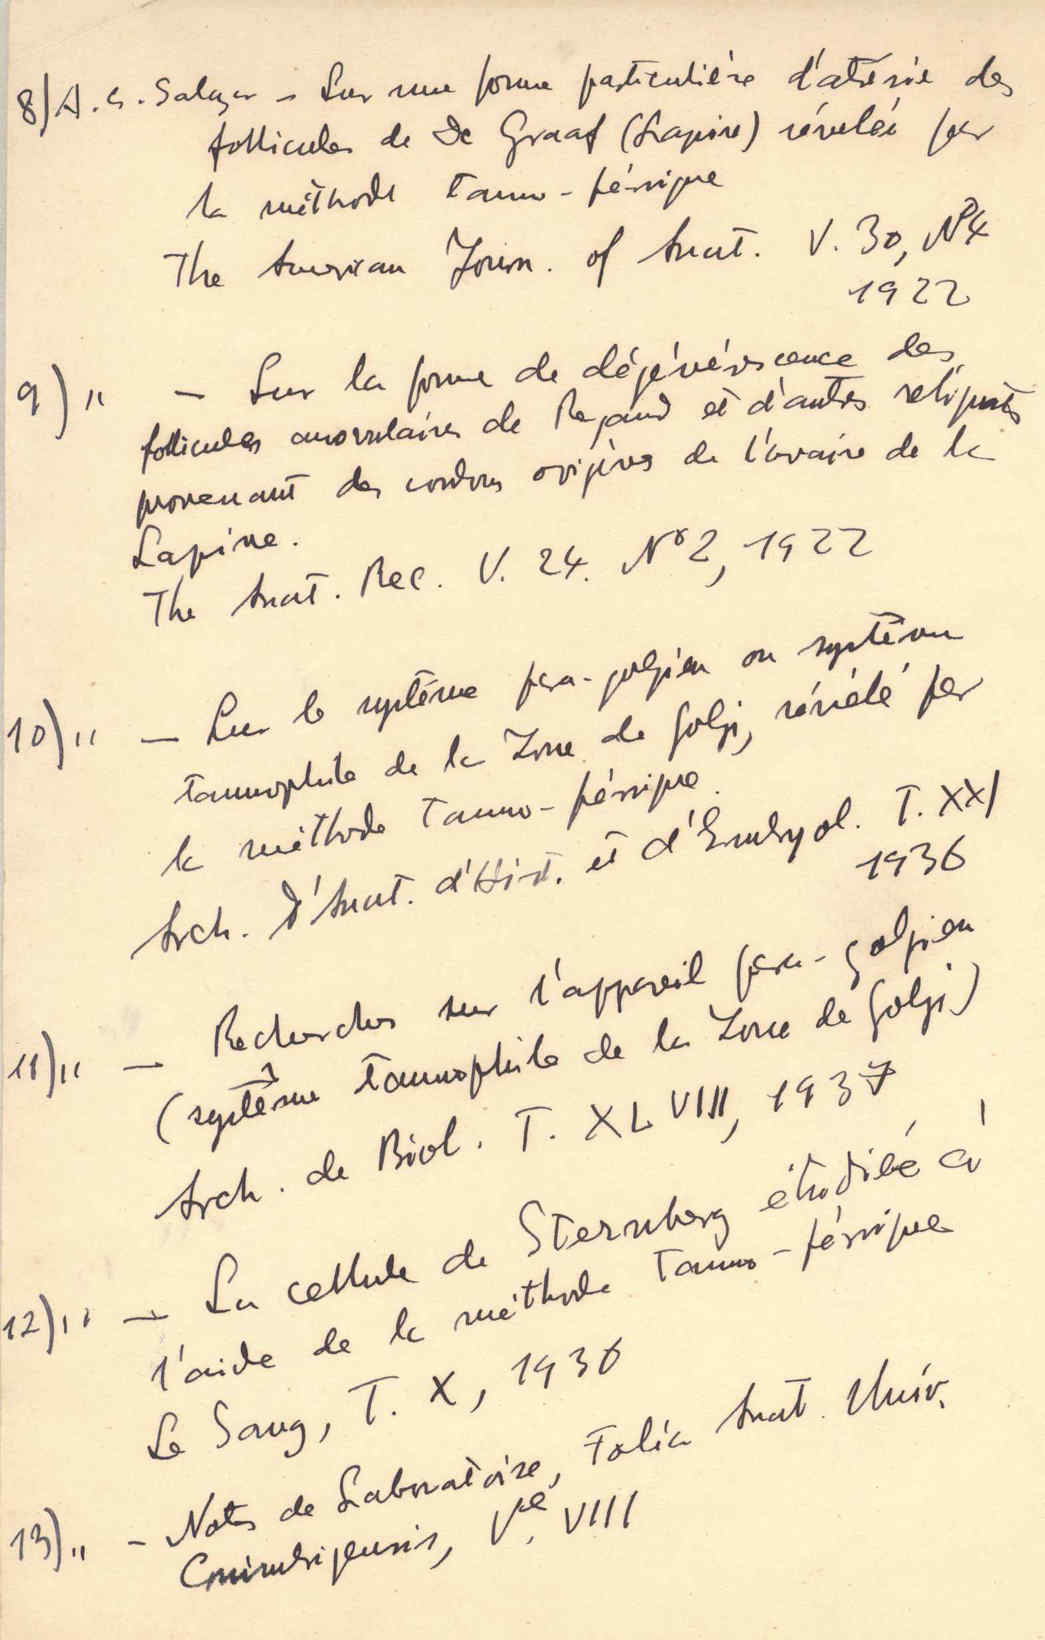 8) A. C. Salazar – Sur une forme particulière d'atrésie des
follicules de De Graaf (Lapine) révélée par
la méthode tanno-férrique
The American Journ. of Anat. V. 30, Nº4
1922
9) " – Sur la forme de dégénérescence des
follicules anovulaires de Regaud et d'autres reliquats
provenant des cordons ovigènes de l'ovaire de la
Lapine.
The Anat. Rec. V. 24. Nº 2, 1922
10) " – Sur le système para-golgien ou système
tannophile de la Zone de Golgi, révélé par
la méthode Tanno-férrique.
Arch. d'Anat. d'Hist. et d'Embryol. T. XXI
1936
11) " – Recherches sur l'appareil para-golgien
(système tannophile de la Zone de Golgi)
Arch. de Biol. T. XLVIII, 1937
12) " – La cellule de Sternberg étudiée à
l'aide de la méthode Tanno-férrique
Le Sang, T. X, 1936
13) " – Notes de Laboratoire, Folia Anat. Univ.
Conimbrigensis, Vé. VIII